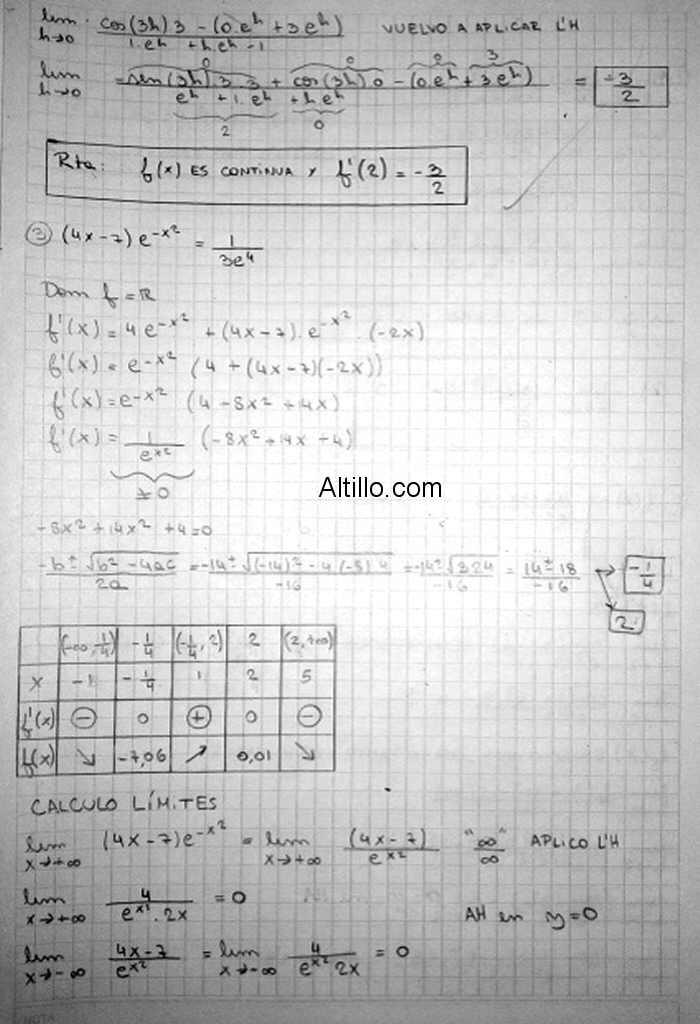 lim h→0 cos(3h)3 - (0.e^h + 3e^h) / 1.e^h + h.e^h - 1 VUELVO A APLICAR L'H
lim h→0 = -sen(3h).3.3 + cos(3h).0 - (0.e^h + 3e^h) / e^h + 1.e^h + h.e^h = -3/2
0 0 0 3
2 0
Rta: f(x) ES CONTINUA Y f'(2) = -3/2
③ (4x-7)e^-x² = 1/3e⁴
Dom f = ℝ
f'(x) = 4e^-x² + (4x-7).e^-x².(-2x)
f'(x) = e^-x² (4 + (4x-7)(-2x))
f'(x) = e^-x² (4 - 8x² + 14x)
f'(x) = 1/e^x² (-8x² + 14x + 4)
≠ 0
Altillo.com
-8x² + 14x² + 4 = 0
-b ± √b² - 4ac / 2a = -14 ± √(-14)² - 4(-8)4 / -16 = -14 ± √324 / -16 = 14 ± 18 / -16 → -1/4
2
(-∞, -1/4) -1/4 (-1/4, 2) 2 (2, +∞)
x -1 -1/4 1 2 5
f'(x) ⊖ 0 ⊕ 0 ⊖
f(x) ↘ -7,06 ↗ 0,01 ↘
CALCULO LÍMITES
lim x→+∞ (4x-7)e^-x² = lim x→+∞ (4x-7)/e^x² "∞"/∞ APLICO L'H
lim x→+∞ 4/e^x².2x = 0
AH en y=0
lim x→-∞ 4x-7/e^x² = lim x→-∞ 4/e^x² 2x = 0